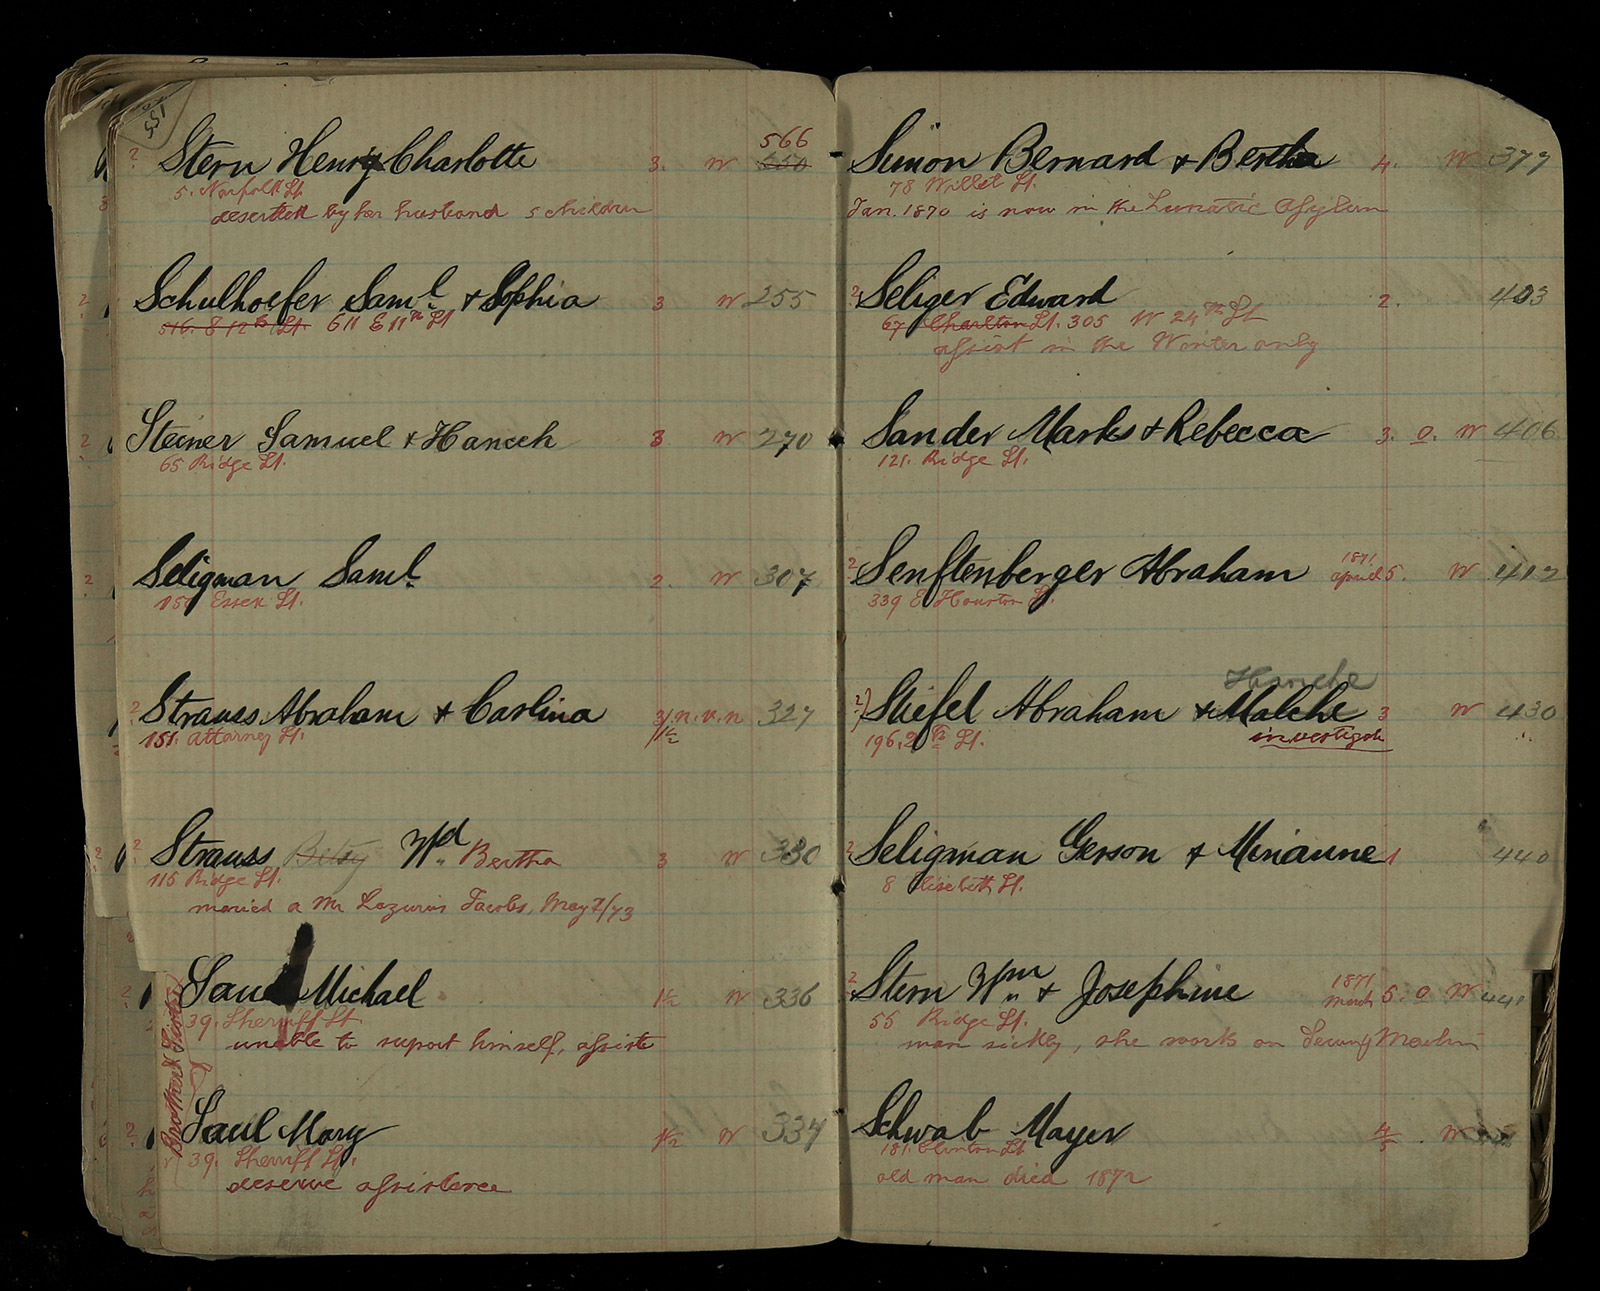 551
566
? Stern Henry Charlotte 3. W 550
5. Norfolk St.
deserted by her husband 5 children
Schulhoefer Saml. & Sophia 3 W 255
516. E 12th St. 611 E 11th St
Steiner Samuel & Hanceh 3 W 270
65 Ridge St.
Seligman Saml. 2. W 307
157 Essex St.
? Strauss Abraham & Carlina 3/ n. v. n 327
151. Attorney St. 1½
? Strauss Betsy Wd. Bertha 3 W 330
115 Ridge St.
maried a Mr Lazurus Jacobs, May 7/73
Michael 1½ W 336
39. Sherriff St.
unable to suport himself, assiste
Brother & Sister
Saul Mary 1½ W 334
39. Sherriff St.
deserve assistence
Simon Bernard & Bertha 4. W 377
78 Willet St.
Jan. 1870 is now in the Lunatic Asylum
? Seliger Edward 2. 403
67 Charlton St. 305 W 24th St
assist in the Winter only
Sander Marks & Rebecca 3. 0. W 406
121. Ridge St.
1871
? Senftenberger Abraham april 5. W 412
339 E Houston St.
Hanche
? Stiefel Abraham & Malche 3 W 430
196. 2th St. investigate
? Seligman Gerson & Mirianne 1 440
8 Elisebeth St.
1871
? Stern Wm & Josephine march 5. 0 W 441
55 Ridge St.
man sickly, she work on Sewing Mashin
Schwab Mayer W
181. Clinton St
old man died 1872